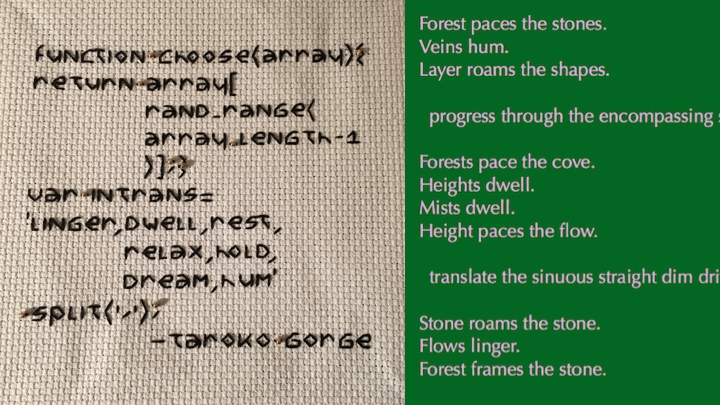 function choose(array){
return array[
rand_range(
array.length-1
)];}
var intrans=
'linger,dwell,rest,
relax,hold,
dream,hum'
split(',');
-Taroko Gorge
Forest paces the stones.
Veins hum.
Layer roams the shapes.
progress through the encompassing
Forests pace the cove.
Heights dwell.
Mists dwell.
Height paces the flow.
translate the sinuous straight dim
Stone roams the stone.
Flows linger.
Forest frames the stone.